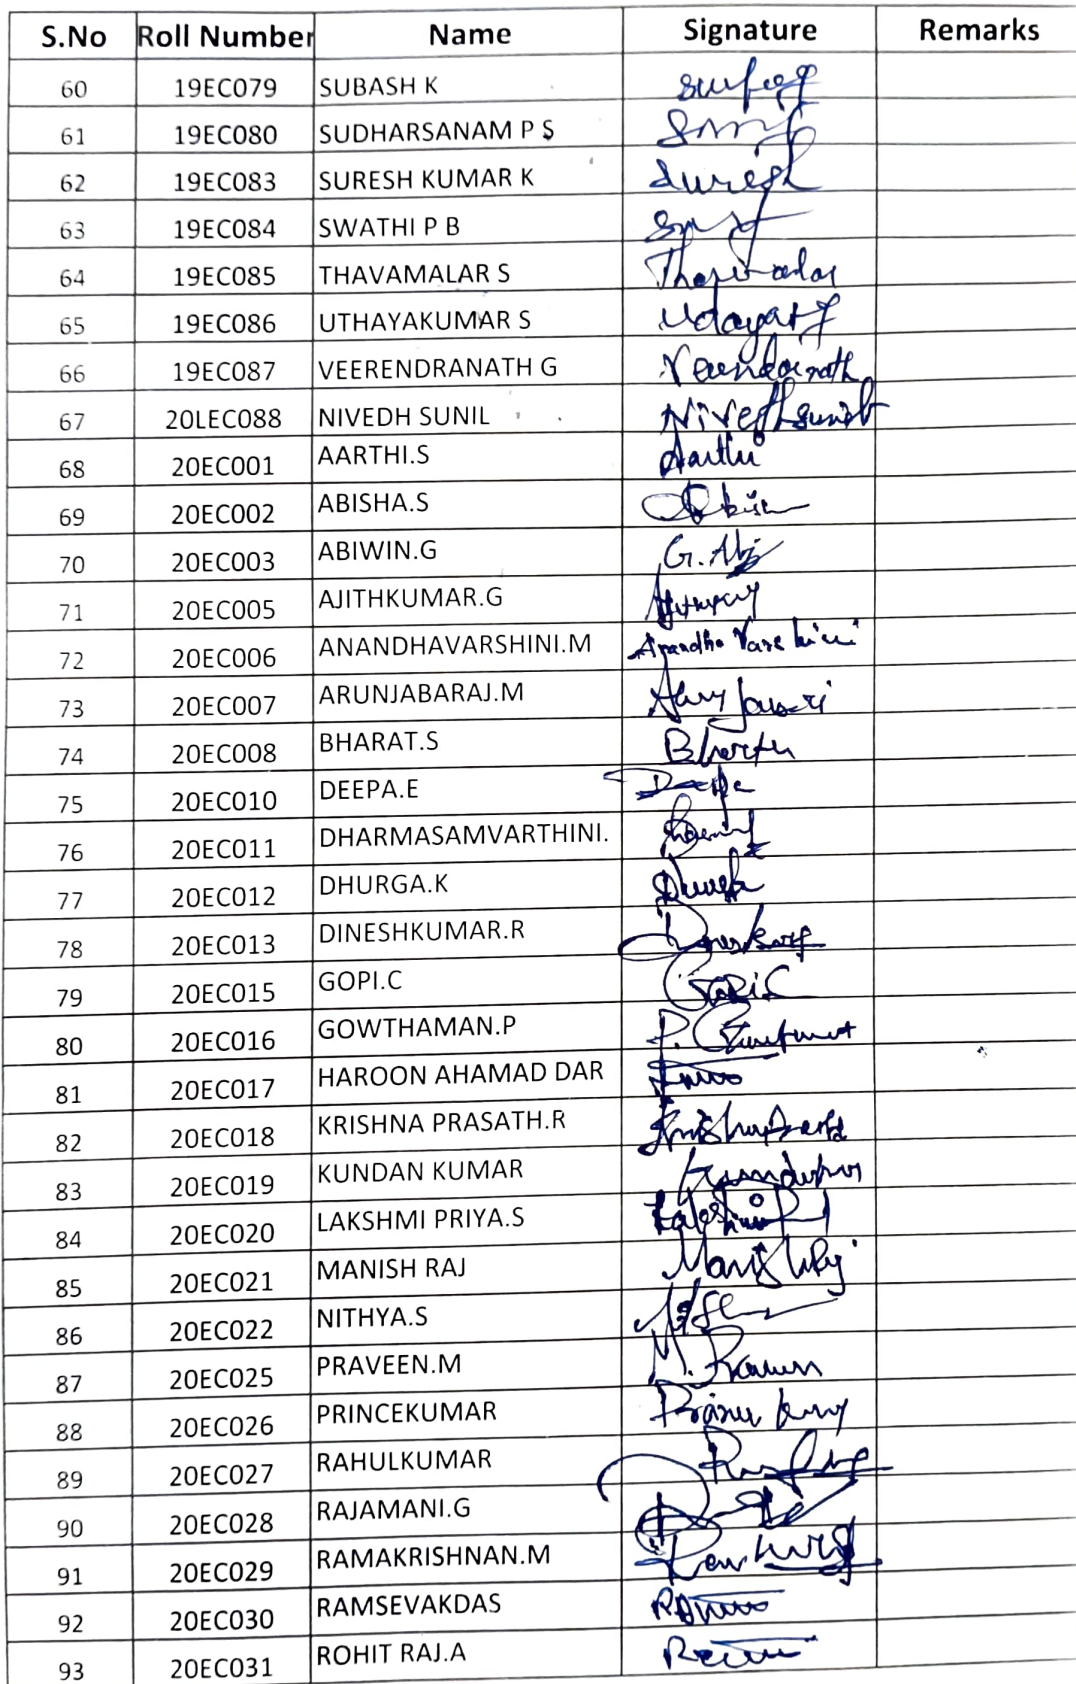 S.No Roll Number Name Signature Remarks
60 19EC079 SUBASH K
61 19EC080 SUDHARSANAM P S
62 19EC083 SURESH KUMAR K Suresh
63 19EC084 SWATHI P B
64 19EC085 THAVAMALAR S
65 19EC086 UTHAYAKUMAR S
66 19EC087 VEERENDRANATH G
67 20LEC088 NIVEDH SUNIL Nivedh Sunil
68 20EC001 AARTHI.S Aarthi
69 20EC002 ABISHA.S
70 20EC003 ABIWIN.G G. Abi
71 20EC005 AJITHKUMAR.G
72 20EC006 ANANDHAVARSHINI.M
73 20EC007 ARUNJABARAJ.M
74 20EC008 BHARAT.S
75 20EC010 DEEPA.E Deepa
76 20EC011 DHARMASAMVARTHINI.
77 20EC012 DHURGA.K
78 20EC013 DINESHKUMAR.R
79 20EC015 GOPI.C Gopi.C
80 20EC016 GOWTHAMAN.P
81 20EC017 HAROON AHAMAD DAR
82 20EC018 KRISHNA PRASATH.R
83 20EC019 KUNDAN KUMAR
84 20EC020 LAKSHMI PRIYA.S
85 20EC021 MANISH RAJ Manish Raj
86 20EC022 NITHYA.S
87 20EC025 PRAVEEN.M
88 20EC026 PRINCEKUMAR
89 20EC027 RAHULKUMAR
90 20EC028 RAJAMANI.G
91 20EC029 RAMAKRISHNAN.M
92 20EC030 RAMSEVAKDAS
93 20EC031 ROHIT RAJ.A